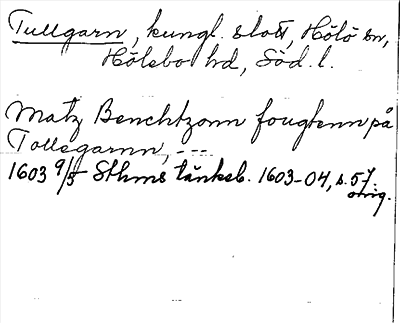 Tullgarn, kungl. slott, Hölö sn,
Hölebo hd, Söd. l.
Matz Benchtzonn fougtenn på
Tollegarnn, ---
1603 9/5 Sthms tänkeb. 1603-04, s. 57.
orig.